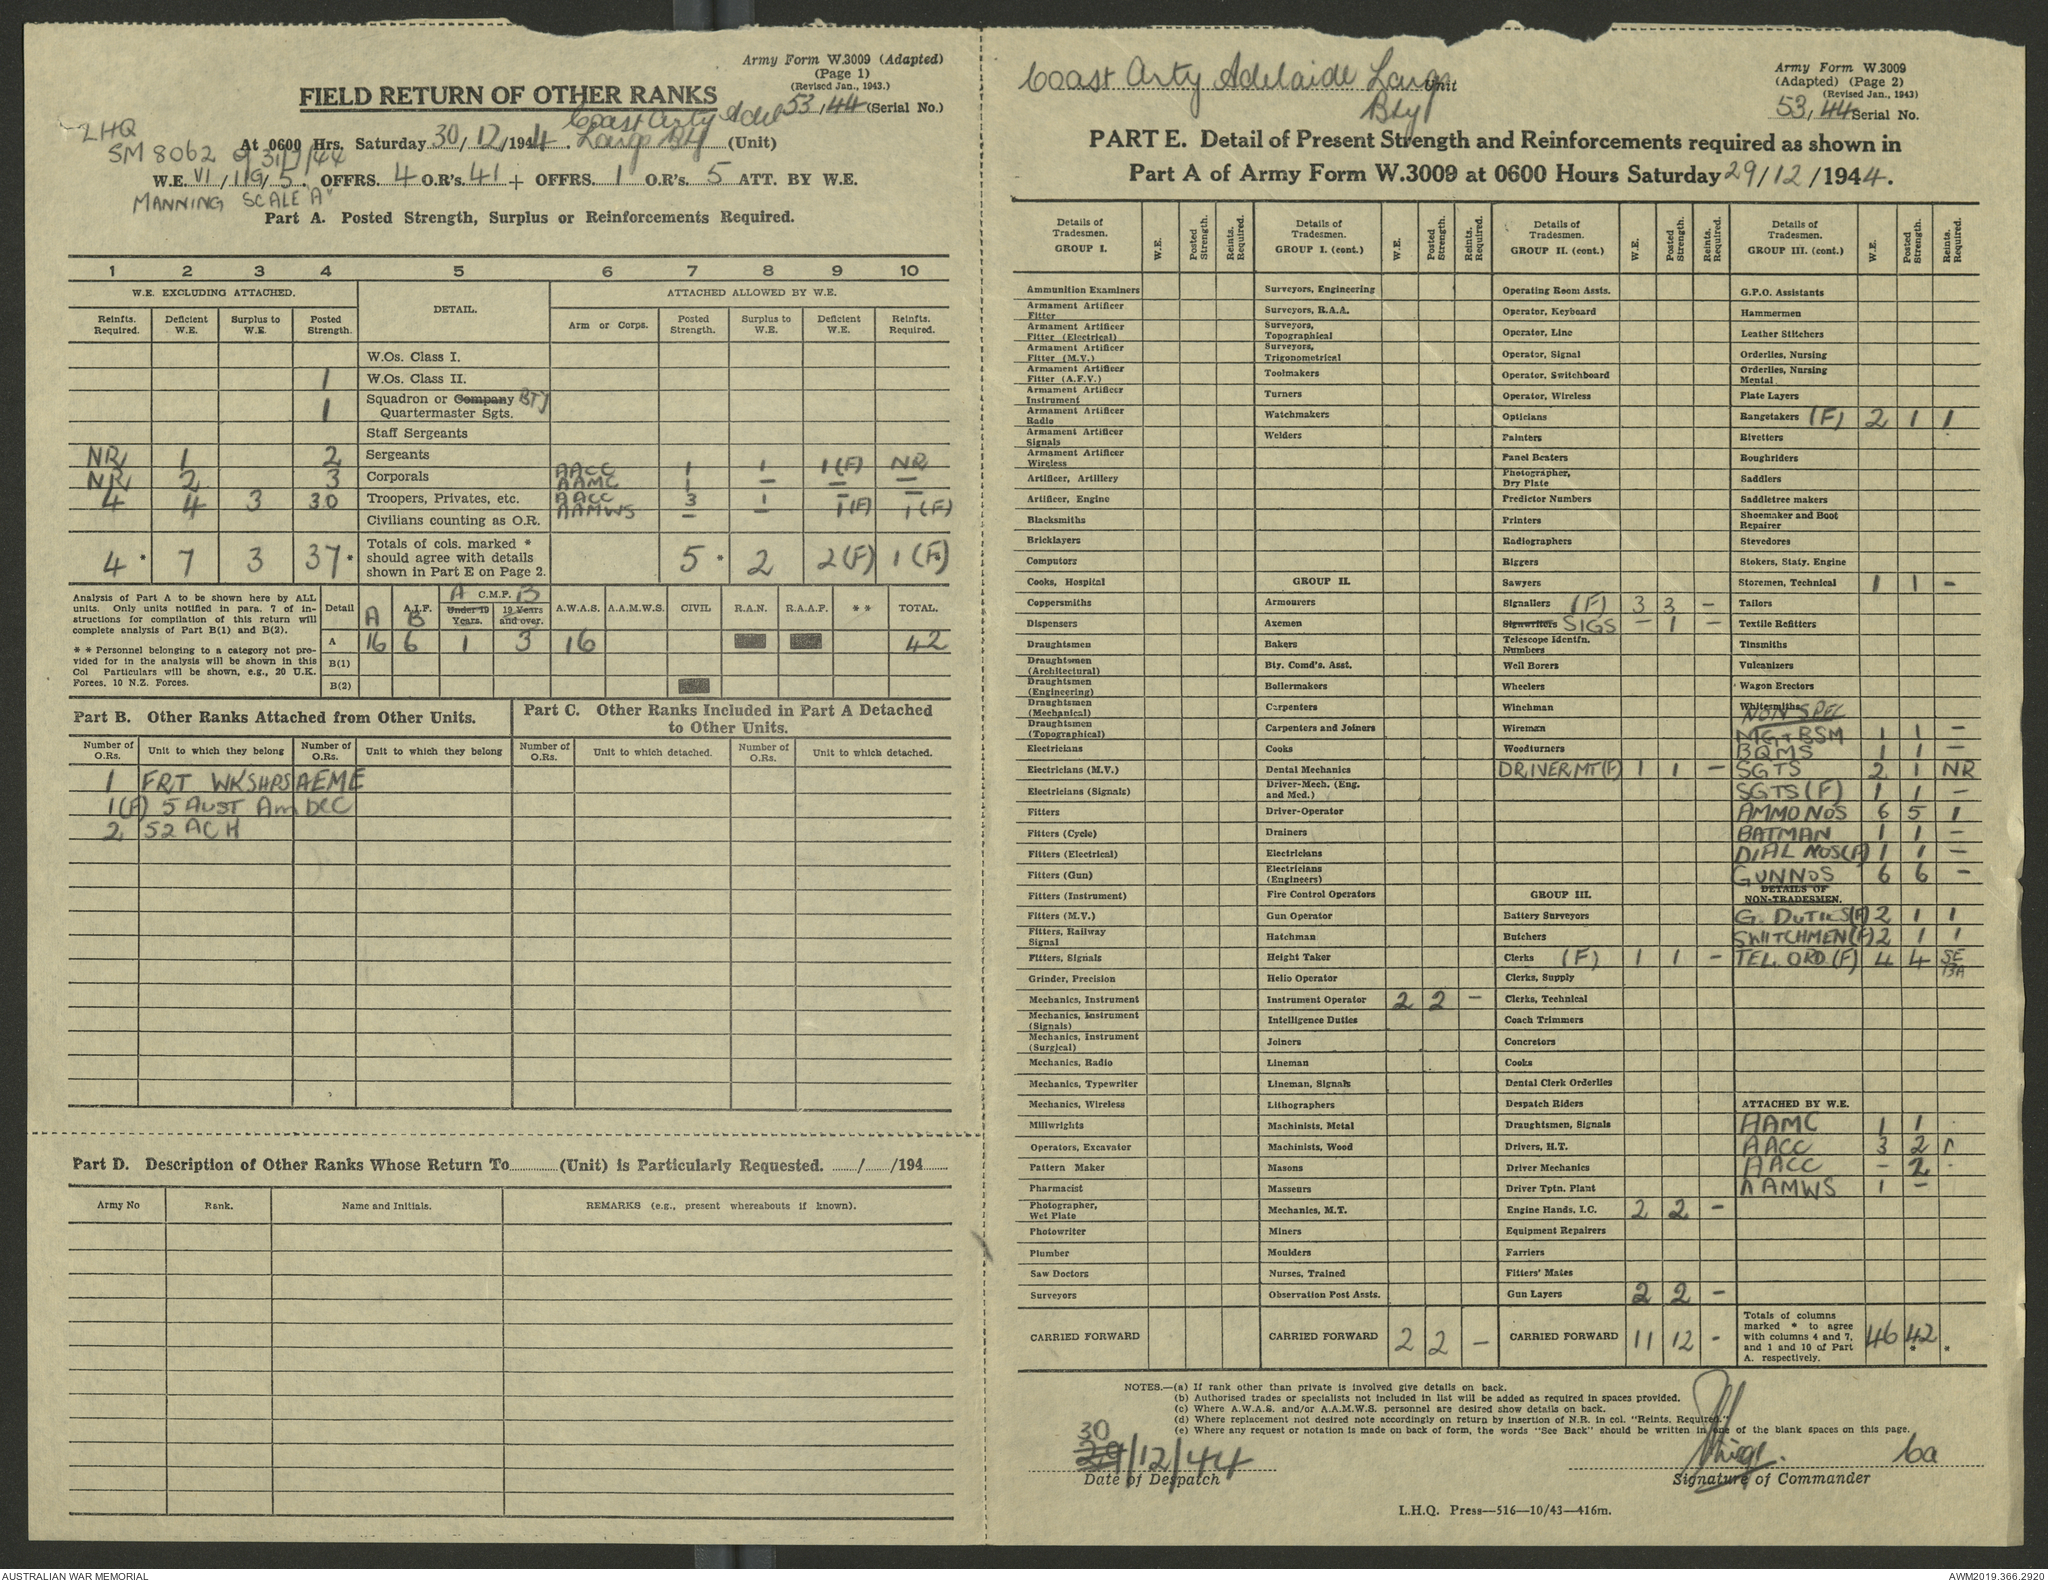 Army Form W.3009 (Adapted)
(Page 1)
(Revised Jan., 1943.)
FIELD RETURN OF OTHER RANKS
53, 44 (Serial No.)
LHQ
SM 8062 of 31/7/44
At 0600 Hrs. Saturday 30/12/1944. Coast Arty Adel Largs Bty (Unit)
W.E. VI/119/5. OFFRS. 4 O.R's. 41 + OFFRS. 1 O.R's. 5 ATT. BY W.E.
MANNING SCALE "A"
Part A. Posted Strength, Surplus or Reinforcements Required.
1 2 3 4 5 6 7 8 9 10
W.E. EXCLUDING ATTACHED. DETAIL. ATTACHED ALLOWED BY W.E.
Reinfts. Required. Deficient W.E. Surplus to W.E. Posted Strength. Arm or Corps. Posted Strength. Surplus to W.E. Deficient W.E. Reinfts. Required.
W.Os. Class I.
1 W.Os. Class II.
1 Squadron or Company BTY Quartermaster Sgts.
Staff Sergeants
NR 1 2 Sergeants AACC 1 1 1(F) NR
NR 2 3 Corporals AAMC 1 - - -
4 4 3 30 Troopers, Privates, etc. AACC 3 1 - -
Civilians counting as O.R. AAMWS - - 1(F) 1(F)
4 * 7 3 37 * Totals of cols. marked * should agree with details shown in Part E on Page 2. 5 * 2 2(F) 1(F)
Analysis of Part A to be shown here by ALL units. Only units notified in para. 7 of instructions for compilation of this return will complete analysis of Part B(1) and B(2).
* * Personnel belonging to a category not provided for in the analysis will be shown in this Col Particulars will be shown, e.g., 20 U.K. Forces, 10 N.Z. Forces.
Detail A.I.F. A B C.M.F. A B Under 19 Years. 19 Years and over. A.W.A.S. A.A.M.W.S. CIVIL R.A.N. R.A.A.F. * * TOTAL.
A 16 6 1 3 16 42
B(1)
B(2)
Part B. Other Ranks Attached from Other Units.
Part C. Other Ranks Included in Part A Detached to Other Units.
Number of O.Rs. Unit to which they belong Number of O.Rs. Unit to which they belong Number of O.Rs. Unit to which detached. Number of O.Rs. Unit to which detached.
1 FRT WKSHPS AEME
1(F) 5 AUST Am DCC
2 52 ACH
Part D. Description of Other Ranks Whose Return To (Unit) is Particularly Requested. / /194
Army No Rank. Name and Initials. REMARKS (e.g., present whereabouts if known).
Coast Arty Adelaide Largs Bty Unit
Army Form W.3009
(Adapted) (Page 2)
(Revised Jan., 1943)
53, 44 Serial No.
PART E. Detail of Present Strength and Reinforcements required as shown in
Part A of Army Form W.3009 at 0600 Hours Saturday 29/12/1944.
Details of Tradesmen. GROUP I. W.E. Posted Strength. Reints. Required.
Ammunition Examiners
Armament Artificer Fitter
Armament Artificer Fitter (Electrical)
Armament Artificer Fitter (M.V.)
Armament Artificer Fitter (A.F.V.)
Armament Artificer Instrument
Armament Artificer Radio
Armament Artificer Signals
Armament Artificer Wireless
Artificer, Artillery
Artificer, Engine
Blacksmiths
Bricklayers
Computors
Cooks, Hospital
Coppersmiths
Dispensers
Draughtsmen
Draughtsmen (Architectural)
Draughtsmen (Engineering)
Draughtsmen (Mechanical)
Draughtsmen (Topographical)
Electricians
Electricians (M.V.)
Electricians (Signals)
Fitters
Fitters (Cycle)
Fitters (Electrical)
Fitters (Gun)
Fitters (Instrument)
Fitters (M.V.)
Fitters, Railway Signal
Fitters, Signals
Grinder, Precision
Mechanics, Instrument
Mechanics, Instrument (Signals)
Mechanics, Instrument (Surgical)
Mechanics, Radio
Mechanics, Typewriter
Mechanics, Wireless
Millwrights
Operators, Excavator
Pattern Maker
Pharmacist
Photographer, Wet Plate
Photowriter
Plumber
Saw Doctors
Surveyors
CARRIED FORWARD
Details of Tradesmen. GROUP I. (cont.) W.E. Posted Strength. Reints. Required.
Surveyors, Engineering
Surveyors, R.A.A.
Surveyors, Topographical
Surveyors, Trigonometrical
Toolmakers
Turners
Watchmakers
Welders
GROUP II.
Armourers
Axemen
Bakers
Bty. Comd's. Asst.
Boilermakers
Carpenters
Carpenters and Joiners
Cooks
Dental Mechanics
Driver-Mech. (Eng. and Med.)
Driver-Operator
Drainers
Electricians
Electricians (Engineers)
Fire Control Operators
Gun Operator
Hatchman
Height Taker
Helio Operator
Instrument Operator 2 2 -
Intelligence Duties
Joiners
Lineman
Lineman, Signals
Lithographers
Machinists, Metal
Machinists, Wood
Masons
Masseurs
Mechanics, M.T.
Miners
Moulders
Nurses, Trained
Observation Post Assts.
CARRIED FORWARD 2 2 -
Details of Tradesmen. GROUP II. (cont.) W.E. Posted Strength. Reints. Required.
Operating Room Assts.
Operator, Keyboard
Operator, Line
Operator, Signal
Operator, Switchboard
Operator, Wireless
Opticians
Painters
Panel Beaters
Photographer, Dry Plate
Predictor Numbers
Printers
Radiographers
Riggers
Sawyers
Signallers (F) 3 3 -
Signwriters SIGS - 1 -
Telescope Identfn. Numbers
Well Borers
Wheelers
Winchman
Wireman
Woodturners
DRIVER MT (F) 1 1 -
GROUP III.
Battery Surveyors
Butchers
Clerks (F) 1 1 -
Clerks, Supply
Clerks, Technical
Coach Trimmers
Concretors
Cooks
Dental Clerk Orderlies
Despatch Riders
Draughtsmen, Signals
Drivers, H.T.
Driver Mechanics
Driver Tptn. Plant
Engine Hands, I.C. 2 2 -
Equipment Repairers
Farriers
Fitters' Mates
Gun Layers 2 2 -
CARRIED FORWARD 11 12 -
Details of Tradesmen. GROUP III. (cont.) W.E. Posted Strength. Reints. Required.
G.P.O. Assistants
Hammermen
Leather Stitchers
Orderlies, Nursing
Orderlies, Nursing Mental
Plate Layers
Rangetakers (F) 2 1 1
Rivetters
Roughriders
Saddlers
Saddletree makers
Shoemaker and Boot Repairer
Stevedores
Stokers, Staty. Engine
Storemen, Technical 1 1 -
Tailors
Textile Refitters
Tinsmiths
Vulcanizers
Wagon Erectors
Whitesmiths
NON SPEC
MG + BSM 1 1 -
BQMS 1 1 -
SGTS 2 1 NR
SGTS (F) 1 1 -
AMMO NOS 6 5 1
BATMAN 1 1 -
DIAL NOS (F) 1 1 -
GUN NOS 6 6 -
DETAILS OF NON-TRADESMEN.
G. DUTIES (F) 2 1 1
SWITCHMEN (F) 2 1 1
TEL. ORD (F) 4 4
ATTACHED BY W.E.
AAMC 1 1
AACC 3 2
AACC - 2
AAMWS 1 -
Totals of columns marked * to agree with columns 4 and 7, and 1 and 10 of Part A. respectively. 46 42 * *
NOTES.—(a) If rank other than private is involved give details on back.
(b) Authorised trades or specialists not included in list will be added as required in spaces provided.
(c) Where A.W.A.S. and/or A.A.M.W.S. personnel are desired show details on back.
(d) Where replacement not desired note accordingly on return by insertion of N.R. in col. "Reints. Required."
(e) Where any request or notation is made on back of form, the words "See Back" should be written in one of the blank spaces on this page.
30
29/12/44
Date of Despatch
Signature of Commander
L.H.Q. Press—516—10/43—416m.
AUSTRALIAN WAR MEMORIAL
AWM2019.366.2920